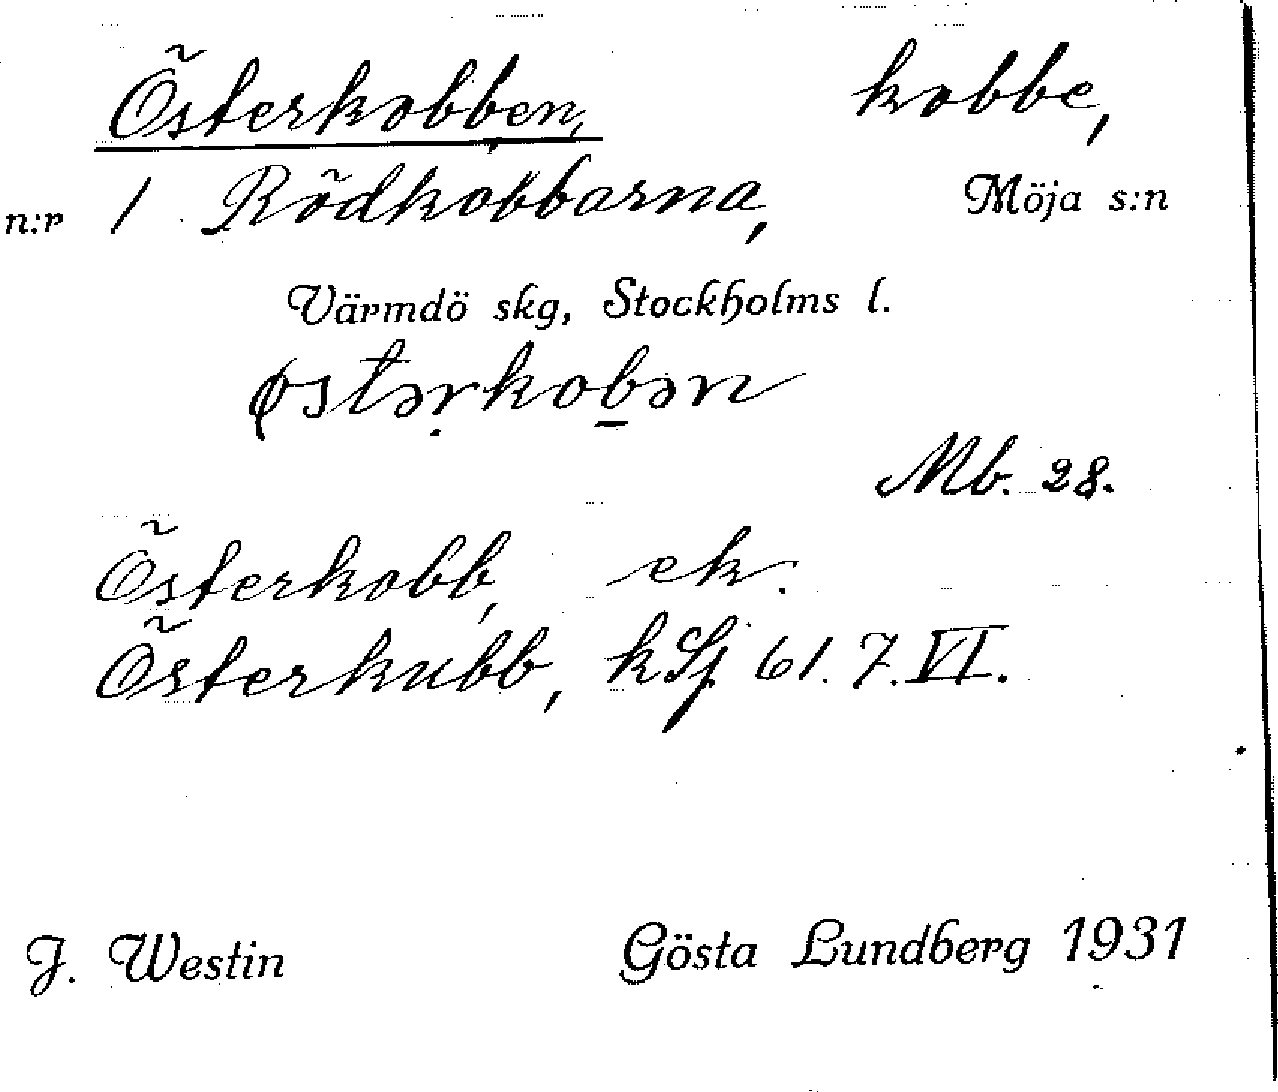 Österkobben, kobbe,
n:r 1 Rödkobbarna, Möja s:n
Värmdö skg, Stockholms l.
Mb. 28.
Österkobb, ek.
Österkubb, kSj 61. 7. VI.
J. Westin Gösta Lundberg 1931